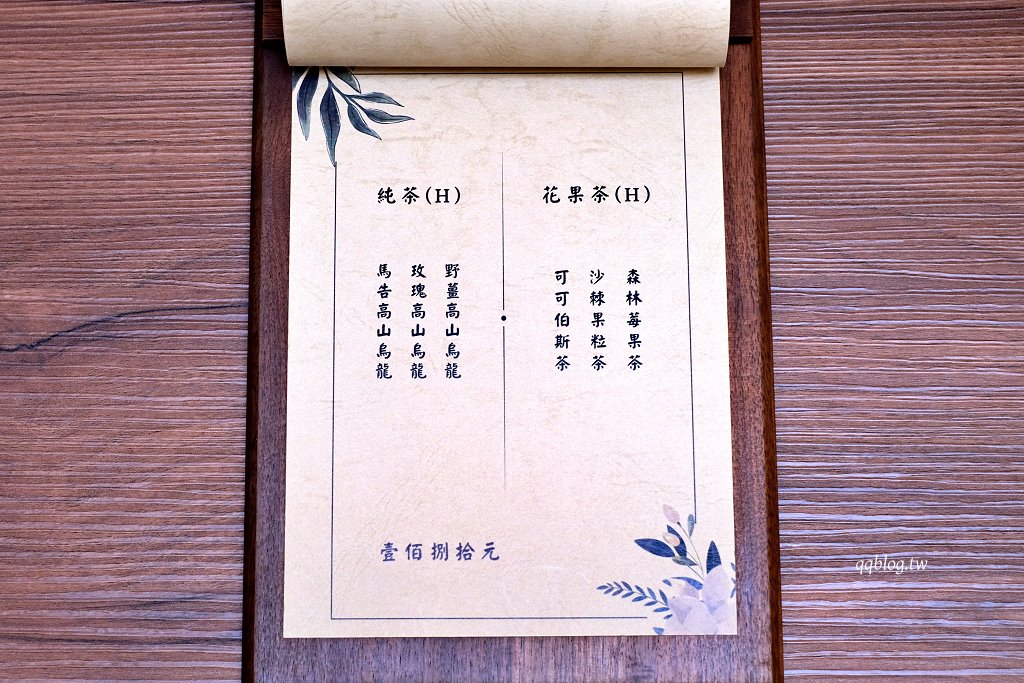 純茶(H)
野薑高山烏龍
玫瑰高山烏龍
馬告高山烏龍
花果茶(H)
森林莓果茶
沙棘果粒茶
可可伯斯茶
壹佰捌拾元
qqblog.tw